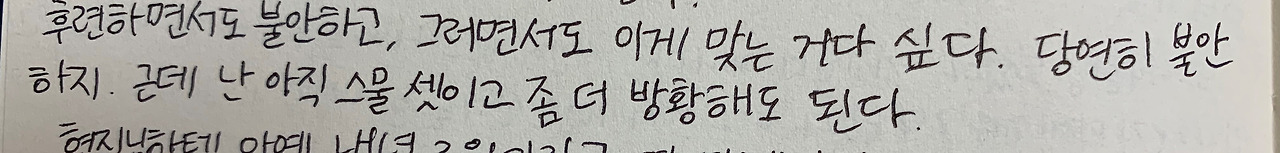 후련하면서도 불안하고, 그러면서도 이게 맞는 거다 싶다. 당연히 불안
하지. 근데 난 아직 스물 셋이고 좀 더 방황해도 된다.
현지님한테 아예